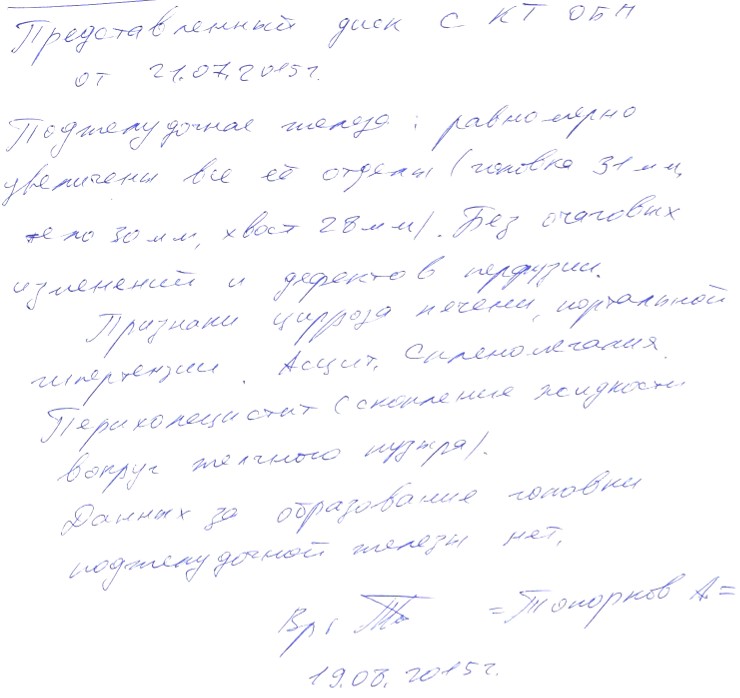 Представленный диск с КТ ОБП
от 21.07.2015г.
Поджелудочная железа: равномерно
увеличены все её отделы (головка 31 мм,
тело 30 мм, хвост 28 мм). Без очаговых
изменений и дефектов перфузии.
Признаки цирроза печени, портальной
гипертензии. Асцит. Спленомегалия.
Перихолецистит (скопление жидкости
вокруг желчного пузыря).
Данных за образование головки
поджелудочной железы нет.
Вр: =Топорков А=
19.08.2015г.